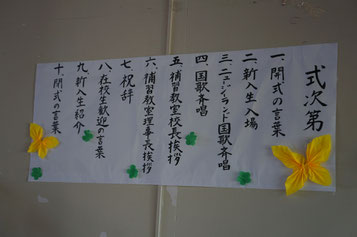 式次第
一、開式の言葉
二、新入生入場
三、ニュージーランド国歌斉唱
四、国歌斉唱
五、補習教室校長挨拶
六、補習教室理事長挨拶
七、祝辞
八、在校生歓迎の言葉
九、新入生紹介
十、閉式の言葉